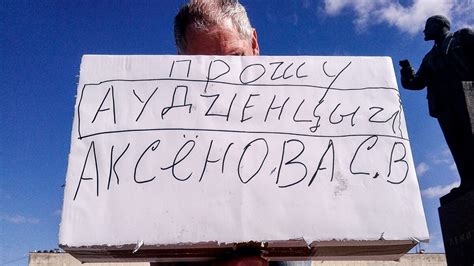 ПРОШУ
АУДИЕНЦЫИ
АКСЁНОВА С.В